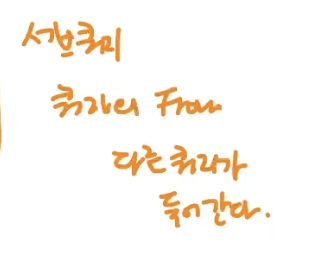 서브쿼리
쿼리의 From
다른 쿼리가
들어간다.